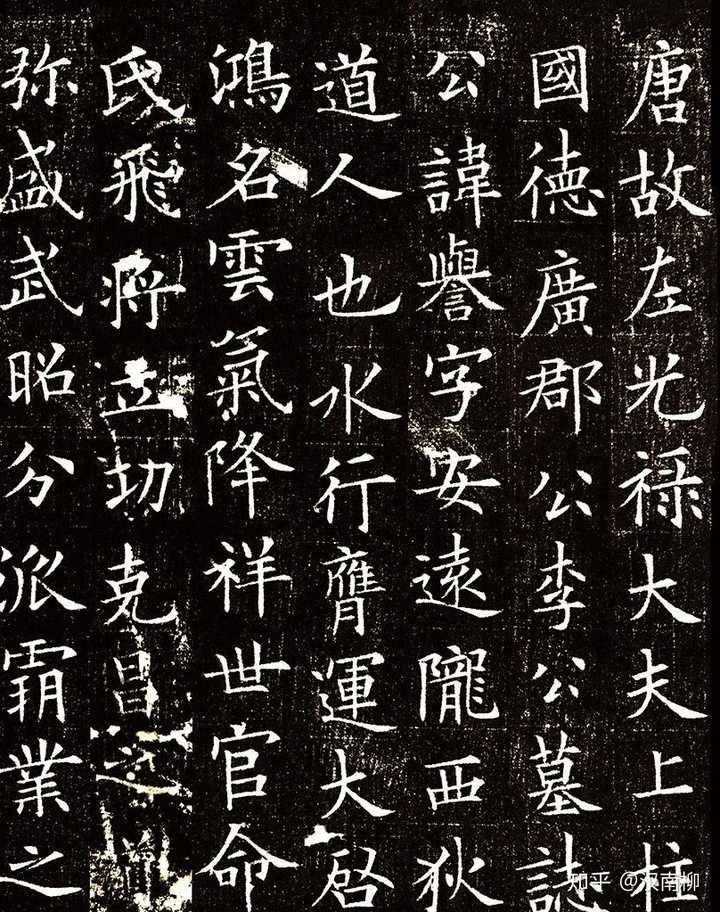 唐故左光禄大夫上柱
國德廣郡公李公墓誌
公諱譽字安遠隴西狄
道人也水行膺運大啓
鴻名雲氣降祥世官命
氏飛將立功克昌
弥盛武昭分派霸業之
知乎 @汉南柳